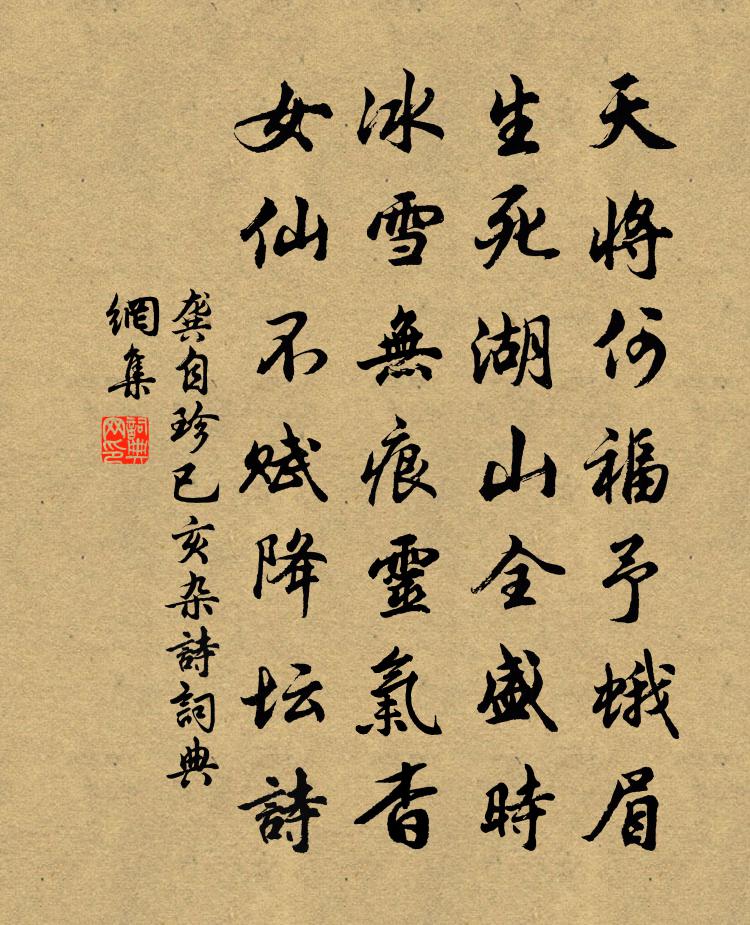 天将何福予蛾眉
生死湖山全盛時
冰雪無痕靈氣杳
女仙不赋降坛詩
龚自珍己亥杂詩詞典
網集
詞典
网印